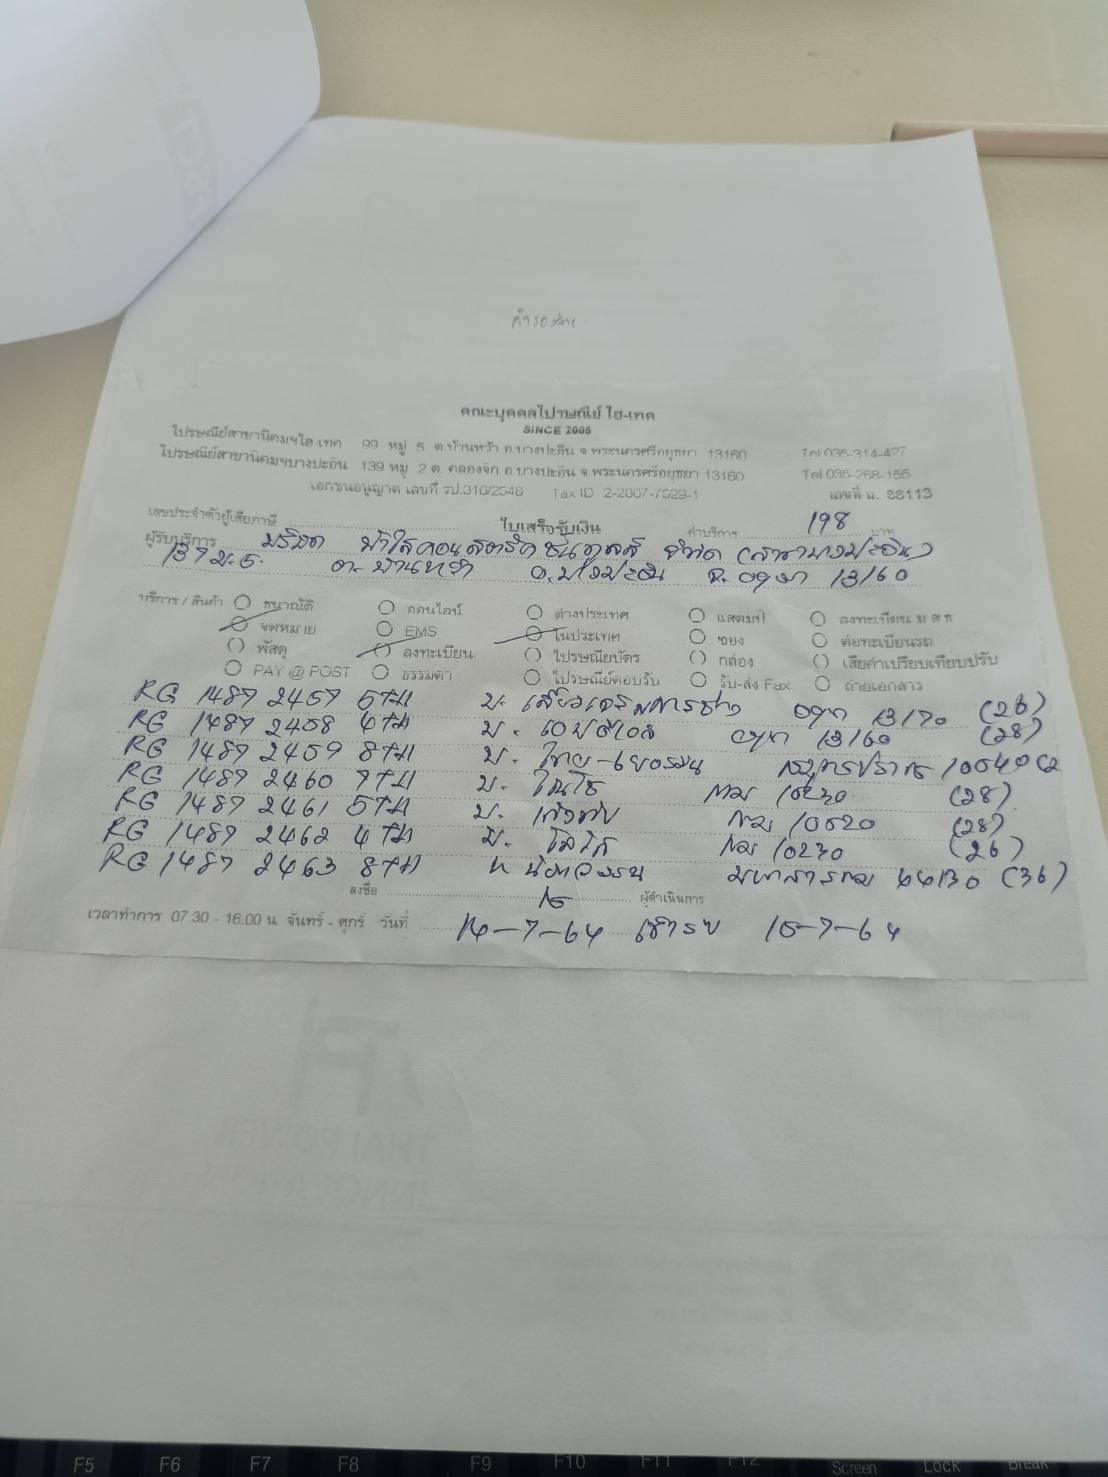 สำรองจ่าย
คณะบุคคลไปรษณีย์ ไฮ-เทค
SINCE 2005
ไปรษณีย์สาขานิคมฯไฮ-เทค 99 หมู่ 5 ต.บ้านหว้า อ.บางปะอิน จ.พระนครศรีอยุธยา 13160 Tel 035-314-427
ไปรษณีย์สาขานิคมฯบางปะอิน 139 หมู่ 2 ต. คลองจิก อ.บางปะอิน จ.พระนครศรีอยุธยา 13160 Tel 035-258-155
เอกชนอนุญาต เลขที่ รป.310/2548 Tax ID 2-2007-7529-1 เลขที่ น. 88113
เลขประจำตัวผู้เสียภาษี ใบเสร็จรับเงิน ค่าบริการ 198 บาท
ผู้รับบริการ บริษัท จำกัด (สาขาบางปะอิน)
137 ม.5. ต. บ้านหว้า อ.บางปะอิน จ. อยุธยา 13160
บริการ / สินค้า ธนาณัติ ออนไลน์ ต่างประเทศ แสตมป์ ลงทะเบียน ม ส ธ
จดหมาย EMS ในประเทศ ซอง ต่อทะเบียนรถ
พัสดุ ลงทะเบียน ไปรษณียบัตร กล่อง เสียค่าเปรียบเทียบปรับ
PAY @ POST ธรรมดา ไปรษณีย์ตอบรับ รับ-ส่ง Fax ถ่ายเอกสาร
RG 1487 2457 5TH บ. อยุธยา 13170 (26)
RG 1487 2458 4TH บ. อยุธยา 13160 (28)
RG 1487 2459 8TH บ. ไทย-เยอรมัน สมุทรปราการ 10540
RG 1487 2460 7TH บ. กทม 10230 (28)
RG 1487 2461 5TH บ. กทม 10520 (28)
RG 1487 2462 4TH บ. กทม 10230 (26)
RG 1487 2463 8TH มหาสารคาม 44130 (36)
ลงชื่อ ผู้ดำเนินการ
เวลาทำการ 07.30 - 16.00 น. จันทร์ - ศุกร์ วันที่ 14-7-64 15-7-64
THAI POWER
F5 F6 F7 F8 F9 F10 F11 F12 Screen Lock Break